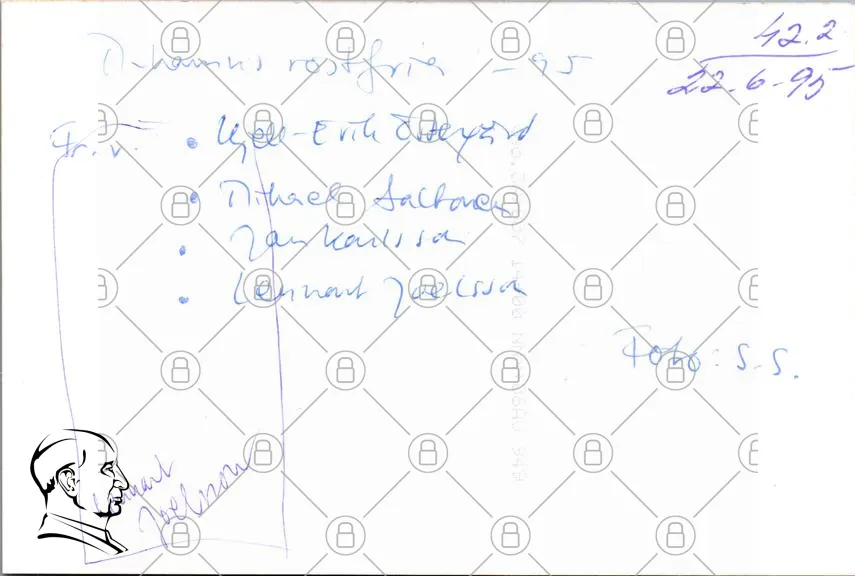 42.2
22-6-95
rostfria -95
Fr. v. • Kjell-Erik Östergård
• Mikael Saltonen
• Jan Karlsson
• Lennart Joelsson
Foto: S.S.
Lennart
Joelsson